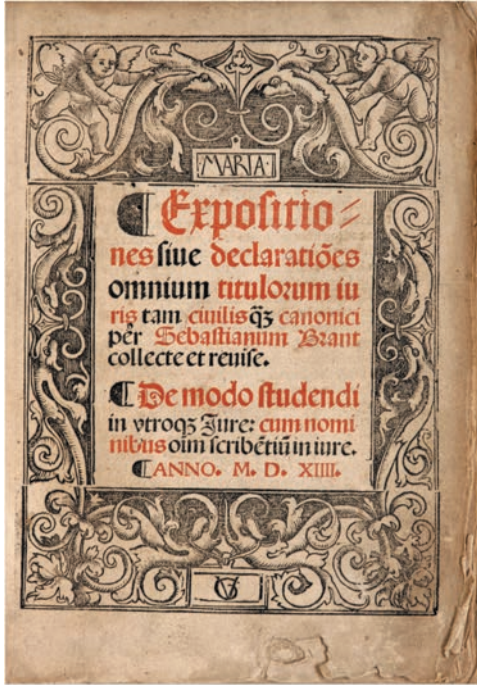 MARIA
¶ Expoſitio⸗
nes ſiue declaratiões
omnium titulorum iu
ris tam ciuilis q̃ꝫ canonici
per Sebaſtianum Brant
collecte et reuiſe.
¶ De modo ſtudendi
in vtroqꝫ Iure: cum nomi
nibus oim ſcribẽtiũ in iure.
¶ ANNO. M. D. XIIII.
VG